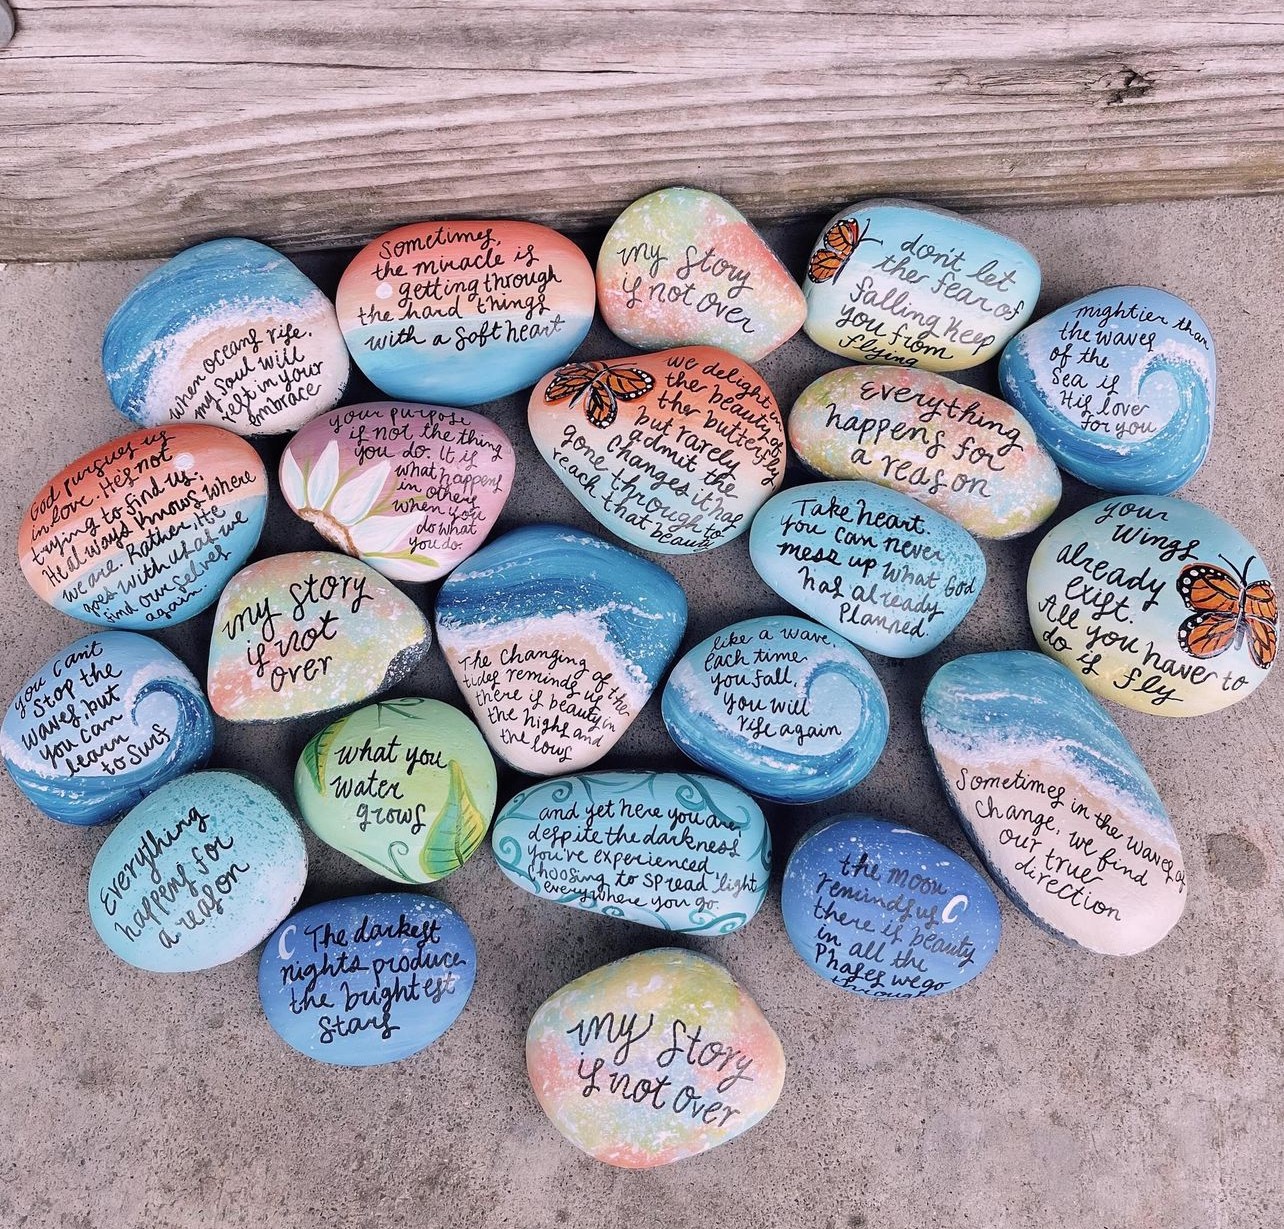 when oceans rise,
my soul will
rest in your
Embrace
Sometimes,
the miracle is
getting through
the hard things
with a soft heart
my story
is not over
don't let
the fear of
falling keep
you from
flying
mightier than
the waves
of the
Sea is
His love
for you
God pursues us
in love. He's not
trying to find us;
He always knows where
we are. Rather, He
goes with us as we
find ourselves
again.
your purpose
is not the thing
you do. It is
what happens
in others
when you
do what
you do.
we delight in
the beauty of
the butterfly
but rarely
admit the
changes it has
gone through to
reach that
beauty
Everything
happens for
a reason
Take heart.
you can never
mess up what God
has already
Planned.
your
wings
already
exist.
All you have to
do is fly
my story
is not
over
The changing of the
tides reminds us that
there is beauty in
the highs and
the lows
like a wave
each time
you fall,
you will
rise again
you can't
stop the
waves, but
you can
learn
to surf
what you
water
grows
Sometimes in the waves of
change, we find
our true
direction
Everything
happens for
a reason
and yet here you are,
despite the darkness
you've experienced,
choosing to spread light
everywhere you go.
the moon
reminds us
there is beauty
in all the
Phases we go
through
The darkest
nights produce
the brightest
Stars
my story
is not over